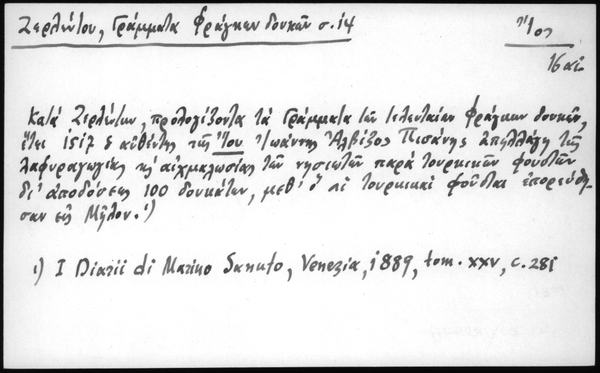 Ζερλέντου, Γράμματα Φράγκων δουκῶν σ. 14
Ἴος
16 αἰ.
Κατά Ζερλέντην, προλογίζοντα τά Γράμματα τῶν τελευταίων Φράγκων δουκῶν,
ἔτει 1517 ὁ αὐθέντης τῆς Ἴου Ἰωάννης Ἀλβίζος Πιζάνης ἀπηλλάγη τῆς
λαφυραγωγίας κ̀ αἰχμαλωσίας τῶν νησιωτῶν παρά τουρκικῶν φουστῶν
δι' ἀποδόσεως 100 δουκάτων, μεθ' ὅ αἱ τουρκικαί φοῦσται ἐπορεύθη-
σαν εἰς Μῆλον. 1)
1) I Diarii di Marino Sanuto, Venezia, 1889, tom. XXV, c. 281